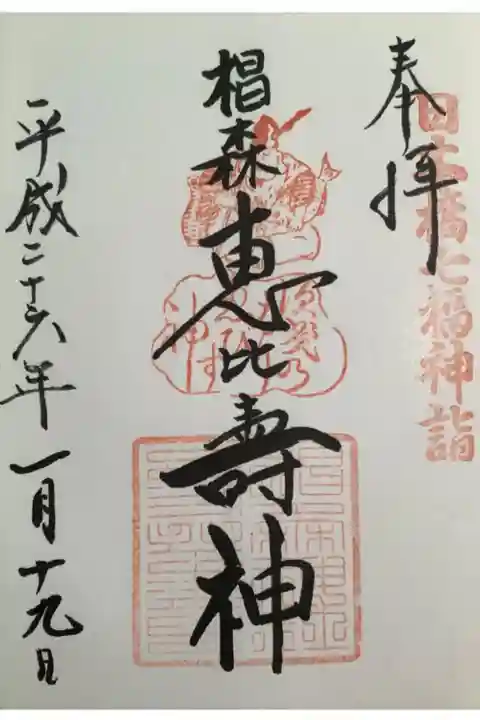 奉拝
日本橋七福神詣
椙森恵比寿神
平成二十六年一月十九日